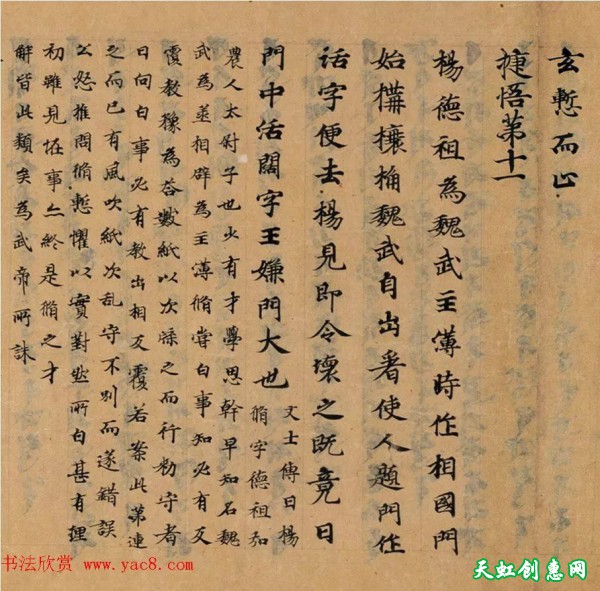 玄慙而止
捷悟第十一
楊德祖為魏武主簿時作相國門
始構榱桷魏武自出看使人題門作
活字便去楊見即令壞之既竟曰
門中活闊字王嫌門大也
文士傳曰楊
脩字德祖弘
農人太尉子也少有才學思幹早知名魏
武為丞相辟為主簿脩嘗白事知必有反
覆教豫為答數紙以次牒之而行勑守者
曰向白事必有教出相反覆若案此第連
之而已有風吹紙次乱守不別而遂錯誤
公怒推問脩慙懼以實對然所白甚有理
初雖見怪事亦終是脩之才
解皆此類矣為武帝所誅
书法欣赏 www.yac8.com
天虹创惠网